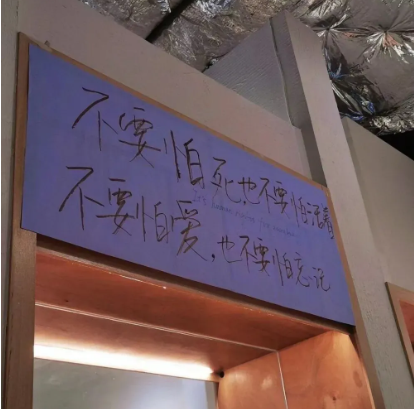 不要怕死,也不要怕活着
不要怕爱,也不要怕忘记